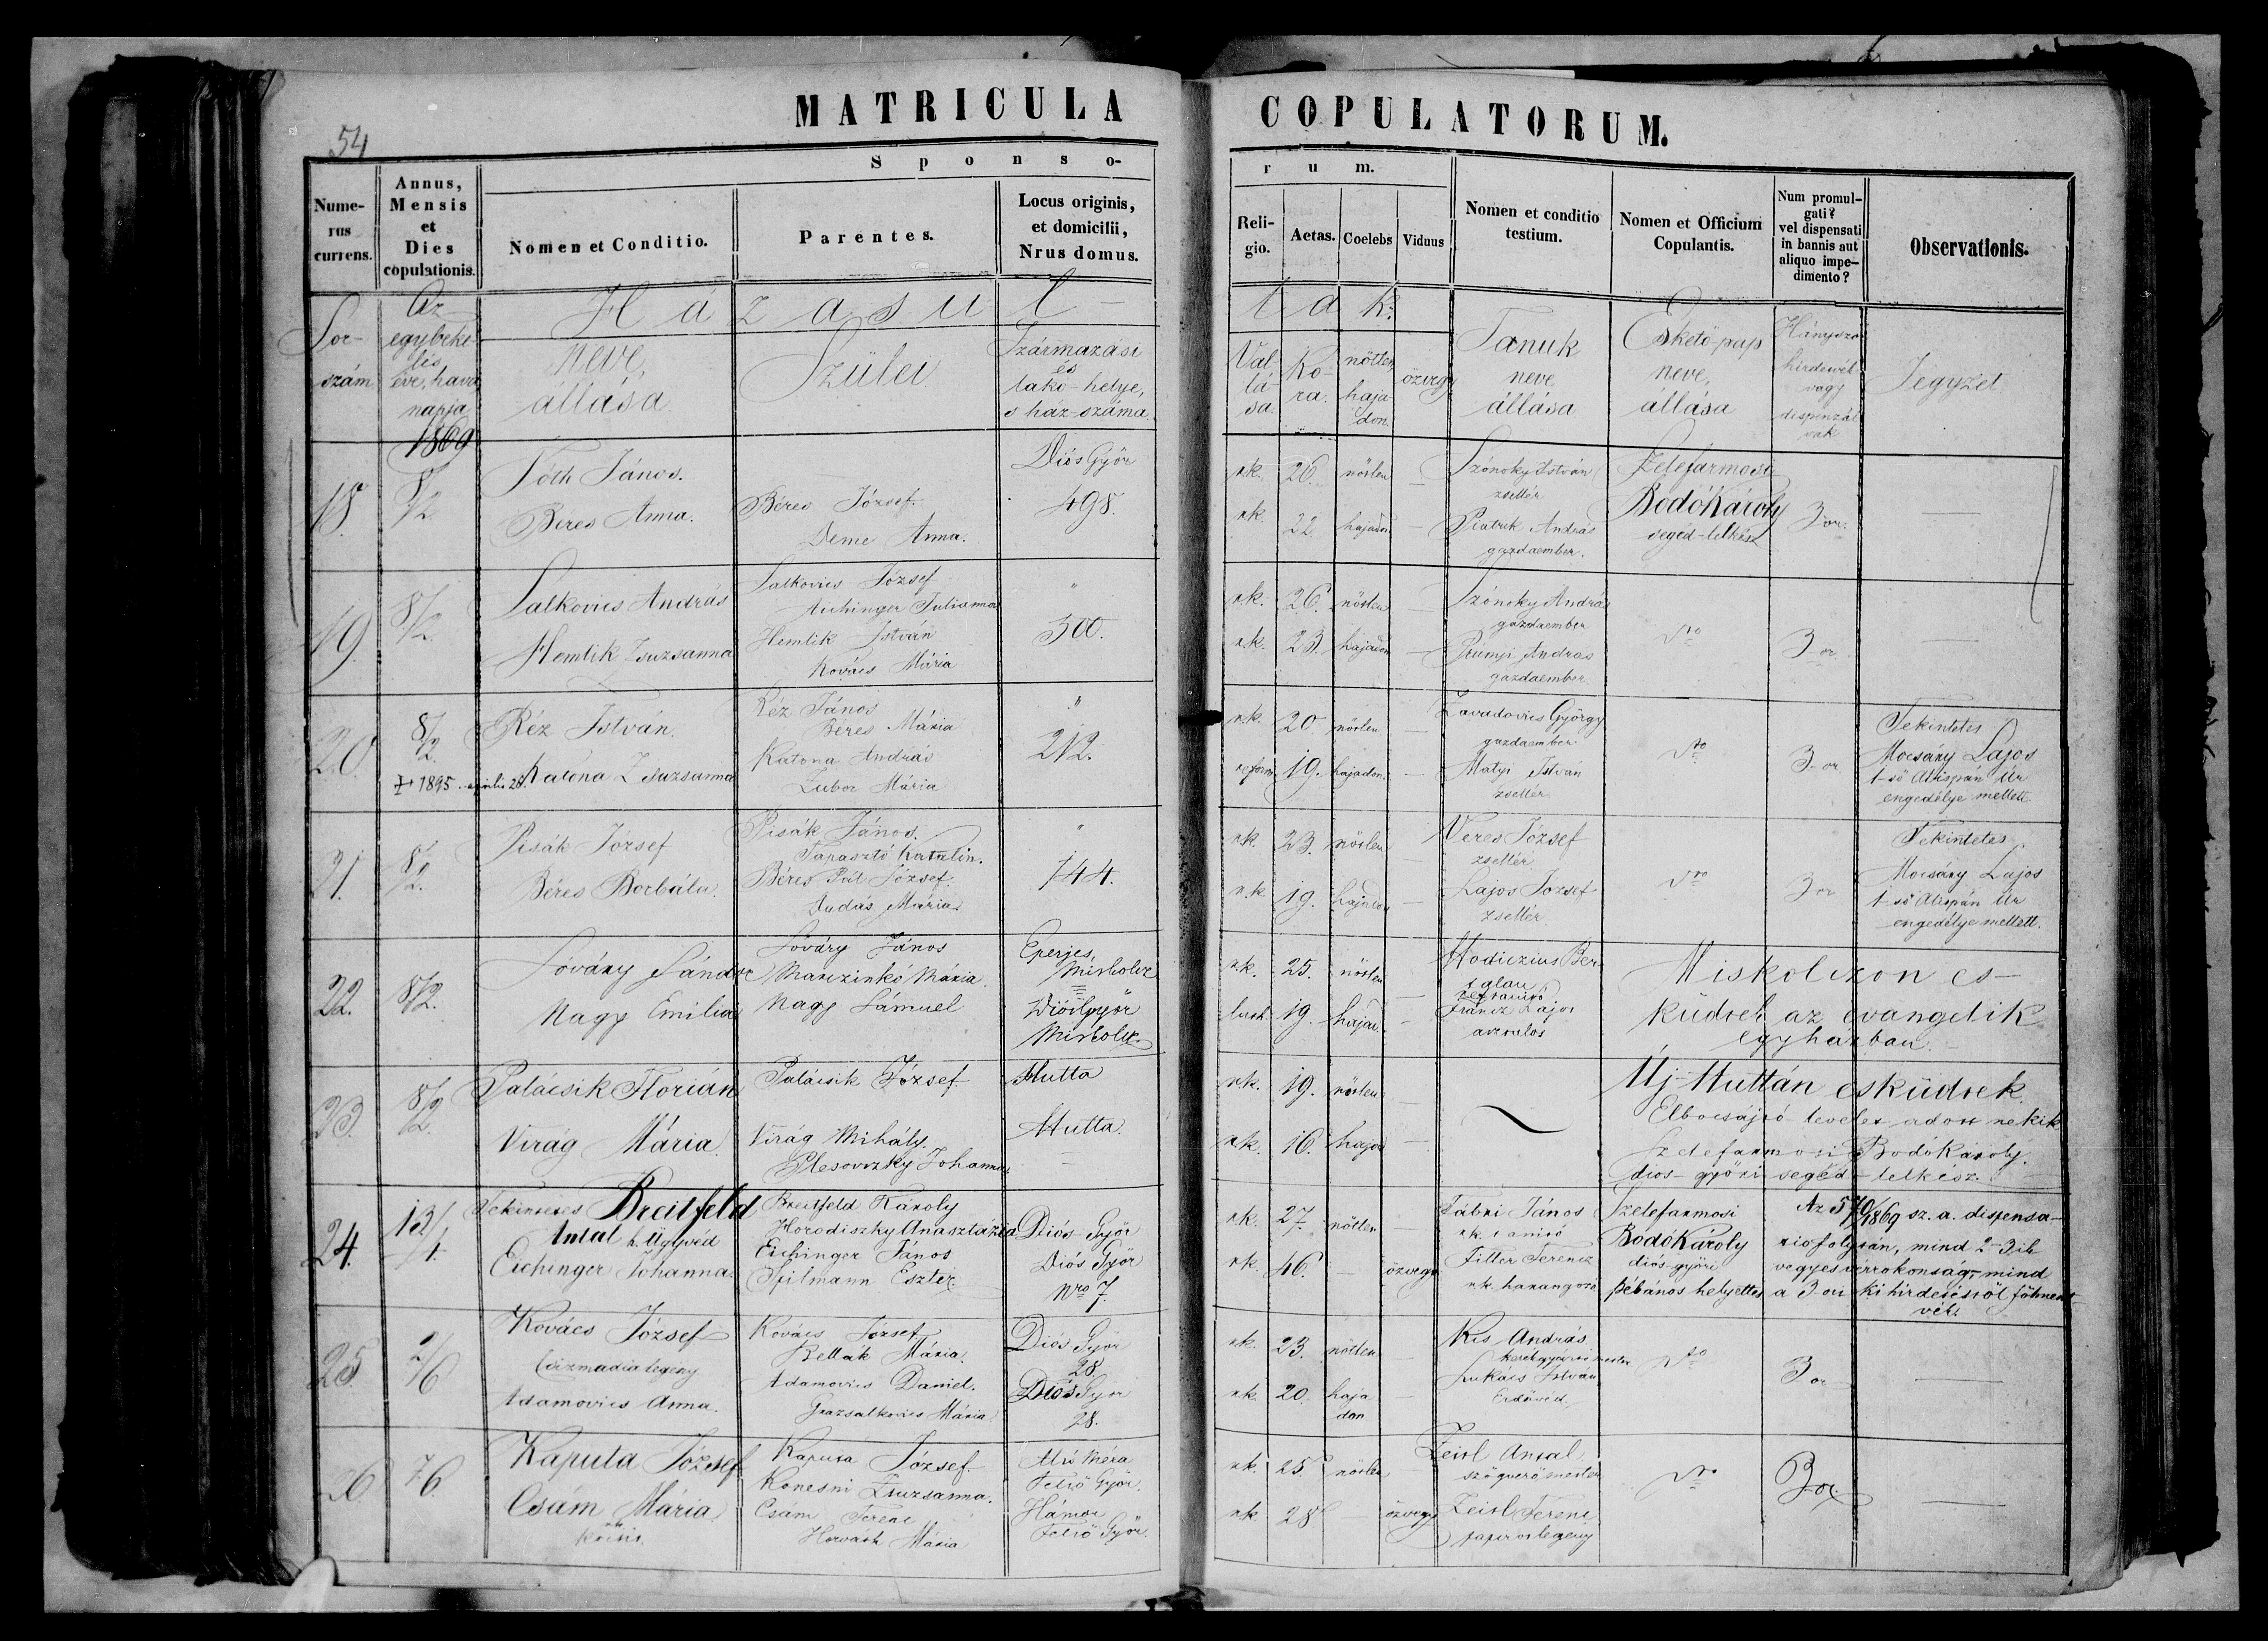 MATRICULA COPULATORUM.
54
Sponso-
rum.
Numerus currens.
Annus, Mensis et Dies copulationis.
Nomen et Conditio.
Parentes.
Locus originis, et domicilii, Nrus domus.
Religio.
Aetas.
Coelebs
Viduus
Nomen et conditio testium.
Nomen et Officium Copulantis.
Num promulgati? vel dispensati in bannis aut aliquo impedimento?
Observationis.
Házasul-
tak
Sor-
szám
Az
egybeke
lés
éve, hava
napja
neve,
állása
Szülei
Származási
és
lakó-helye,
s ház-száma.
Val
lá
sa
Ko-
ra.
nőtlen
haja
don.
özvegy
Tanuk
neve
állása
Esketö-pap
neve,
állása
Hányszor
hirdetvék
vagy
dispenzál
vák
Jegyzet
1869
18.
8/2
Tóth János.
Béres Anna.
Béres József.
Deme Anna.
Diós Győr
498.
rk. 26. nőtlen
rk. 22. hajadon
Szónoky István
zsellér
Piatrik András
gazdaember.
Szelefarmosi
Bodó Károly
segéd-lelkész
3-or.
19.
8/2.
Salkovics András
Hemlik Zsuzsanna
Salkovics József
Aichinger Julianna
Hemlik István
Kovács Mária
"
300.
rk. 26. nőtlen
rk. 23. hajadon
Szónoky András
gazdaember
András
gazdaember
3-or.
20.
8/2.
1895 április 28.
Réz István.
Katona Zsuzsanna
Réz János
Béres Mária
Katona András
Zubor Mária
"
212.
rk. 20 nőtlen
reform. 19. hajadon.
Zavadovics György
gazdaember
Matyi István
zsellér
3-or
Tekintetes
Mocsáry Lajos
1-ső Alispán Úr
engedélye mellett
21.
8/2.
Pisák József
Béres Borbála.
Pisák János.
Tapasztó Katalin.
Béres Pál József.
Dudás Mária.
"
144.
rk. 23. nőtlen
r.k. 19. hajadon
Veres József
zsellér
Lajos József
zsellér
3 or
Tekintetes
Mocsáry Lajos
1-ső Alispán Úr
engedélye mellett.
22.
8/2.
Sóváry Sándor
Nagy Emilia
Sóváry János
Marczinkó Mária.
Nagy Sámuel
Eperjes,
Miskolcz
Diósgyőr
Miskolcz
r.k. 25. nőtlen
luth. 19. hajad.
Francz Lajos
asztalos
Miskolczon es-
küdtek az evangelik.
egyházban.
23.
8/2
Palácsik Florián
Virág Mária.
Palácsik József
Virág Mihály.
Plesovszky Johanna
Hutta
Hutta.
rk. 19. nőtlen
r.k. 16. hajad
Új-Huttán esküdtek.
Elbocsájtó levelet adott nekik
Szelefarmosi Bodó Károly.
diós-győri segéd-lelkész.
24.
13/4.
Tekintetes Breitfeld
Antal h. Ügyvéd
Eichinger Johanna.
Breitfeld Károly
Horodiszky Anasztázia
Eichinger János
Spilmann Eszter
Diós Győr
Diós Győr
Nro 7.
rk. 27. nőtlen
rk. 46. özvegy
Fábri János
rk. tanitó
Fitter Ferencz
rk. harangozó
Szelefarmosi
Bodó Károly
diós-győri
plébános helyettes
Az 570/1869 sz. a. dispensa-
tio folytán, mind 2-3-ik
vegyes vérrokonság, mind
a 3-ori kihirdetéstől fölment-
vék.
25.
2/6
Kovács József
Csizmadia legény
Adamovics Anna.
Kovács József
Bellák Mária.
Adamovics Daniel.
Grazsalkovics Mária
Diós Győr
28
Diós Győr
28.
rk. 23. nőtlen
rk. 20. haja
don
Kis András
kerékgyártó mester
Lukács István
Erdővéd.
3 or
26
7/6
Kaputa József
Csám Mária
Kaputa József.
Konesni Zsuzsanna.
Csám Ferenc
Horváth Mária
Alsó Méra
Felső Győr.
Hámor
Felső Győr.
rk. 25. nőtlen
rk. 28 özvegy
Zeisl Antal
szögverő mester
Zeisl Ferenc
papiros legény
3 or.